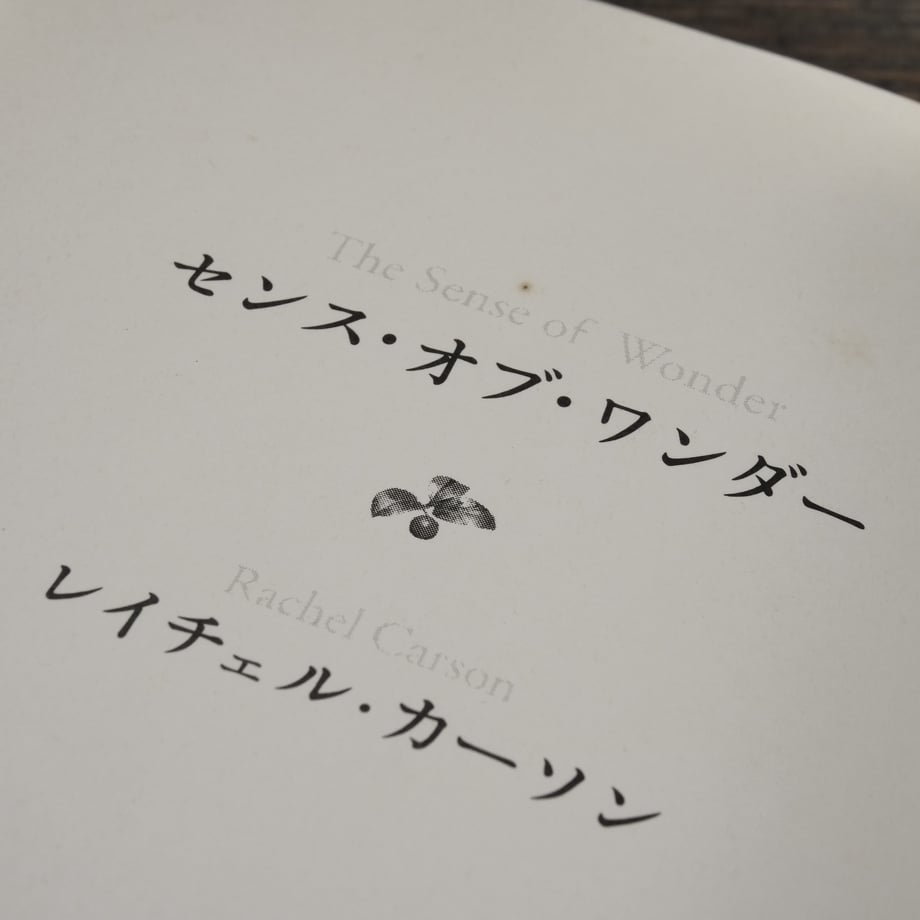 The Sense of Wonder
センス・オブ・ワンダー
Rachel Carson
レイチェル・カーソン